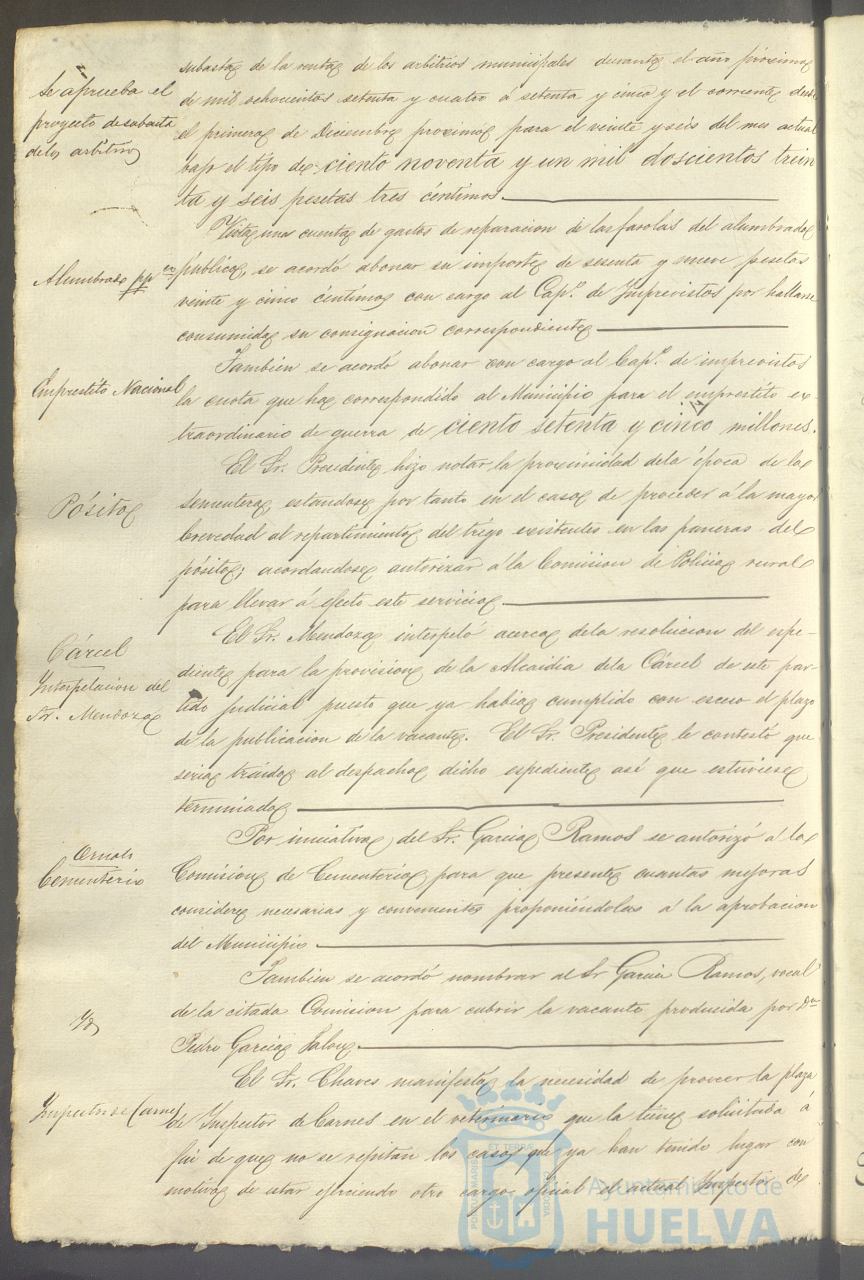 Se aprueba el
proyecto de subasta
de los arbitrios
subasta de la renta de los arbitrios municipales durante el año próximo
de mil ochocientos setenta y cuatro á setenta y cinco y el corriente desde
el primero de Diciembre proximo para el veinte y seis del mes actual
bajo el tipo de ciento noventa y un mil doscientos trein
ta y seis pesetas tres céntimos.
Alumbrado pp co
Vista una cuenta de gastos de reparacion de las farolas del alumbrado
público, se acordó abonar su importe de sesenta y nueve pesetas
veinte y cinco céntimos con cargo al Capº. de Imprevistos por hallarse
consumida su consignacion correspondiente
Emprestito Nacional
Tambien se acordó abonar con cargo al Capº. de imprevistos
la cuota que ha correspondido al Municipio para el emprestito ex-
traordinario de guerra de ciento setenta y cinco millones.
Pósito
El Sr. Presidente hizo notar la proximidad de la época de la
sementera, estandose por tanto en el caso de proceder á la mayor
brevedad al repartimiento del trigo existentes en las paneras del
pósito; acordandose autorizar á la Comision de Policia rural
para llevar á efecto este servicio
Cárcel
Interpelacion del
Sr. Mendoza
El Sr. Mendoza interpeló acerca de la resolucion del espe-
diente para la provision de la Alcaidia de la Cárcel de este par-
tido judicial puesto que ya habia cumplido con esceso el plazo
de la publicacion de la vacante. El Sr. Presidente le contestó que
seria traido al despacho dicho espediente así que estuviese
terminado
Ornato
Cementerio
Por iniciativa del Sr. Garcia Ramos se autorizó á la
Comision de Cementerio para que presente cuantas mejoras
considere necesarias y convenientes proponiéndolas á la aprobacion
del Municipio
Tambien se acordó nombrar al Sr Garcia Ramos, vocal
de la citada Comision para cubrir la vacante producida por Dn
Pedro Garcia
Inspector de Carnes
El Sr. Chaves manifestó la necesidad de proveer la plaza
de Inspector de Carnes en el veterinario que la tiene solicitada á
fin de que no se repitan los casos que ya han tenido lugar con
motivo de estar ejerciendo otro cargo oficial el actual Inspector de
Ayuntamiento de
HUELVA